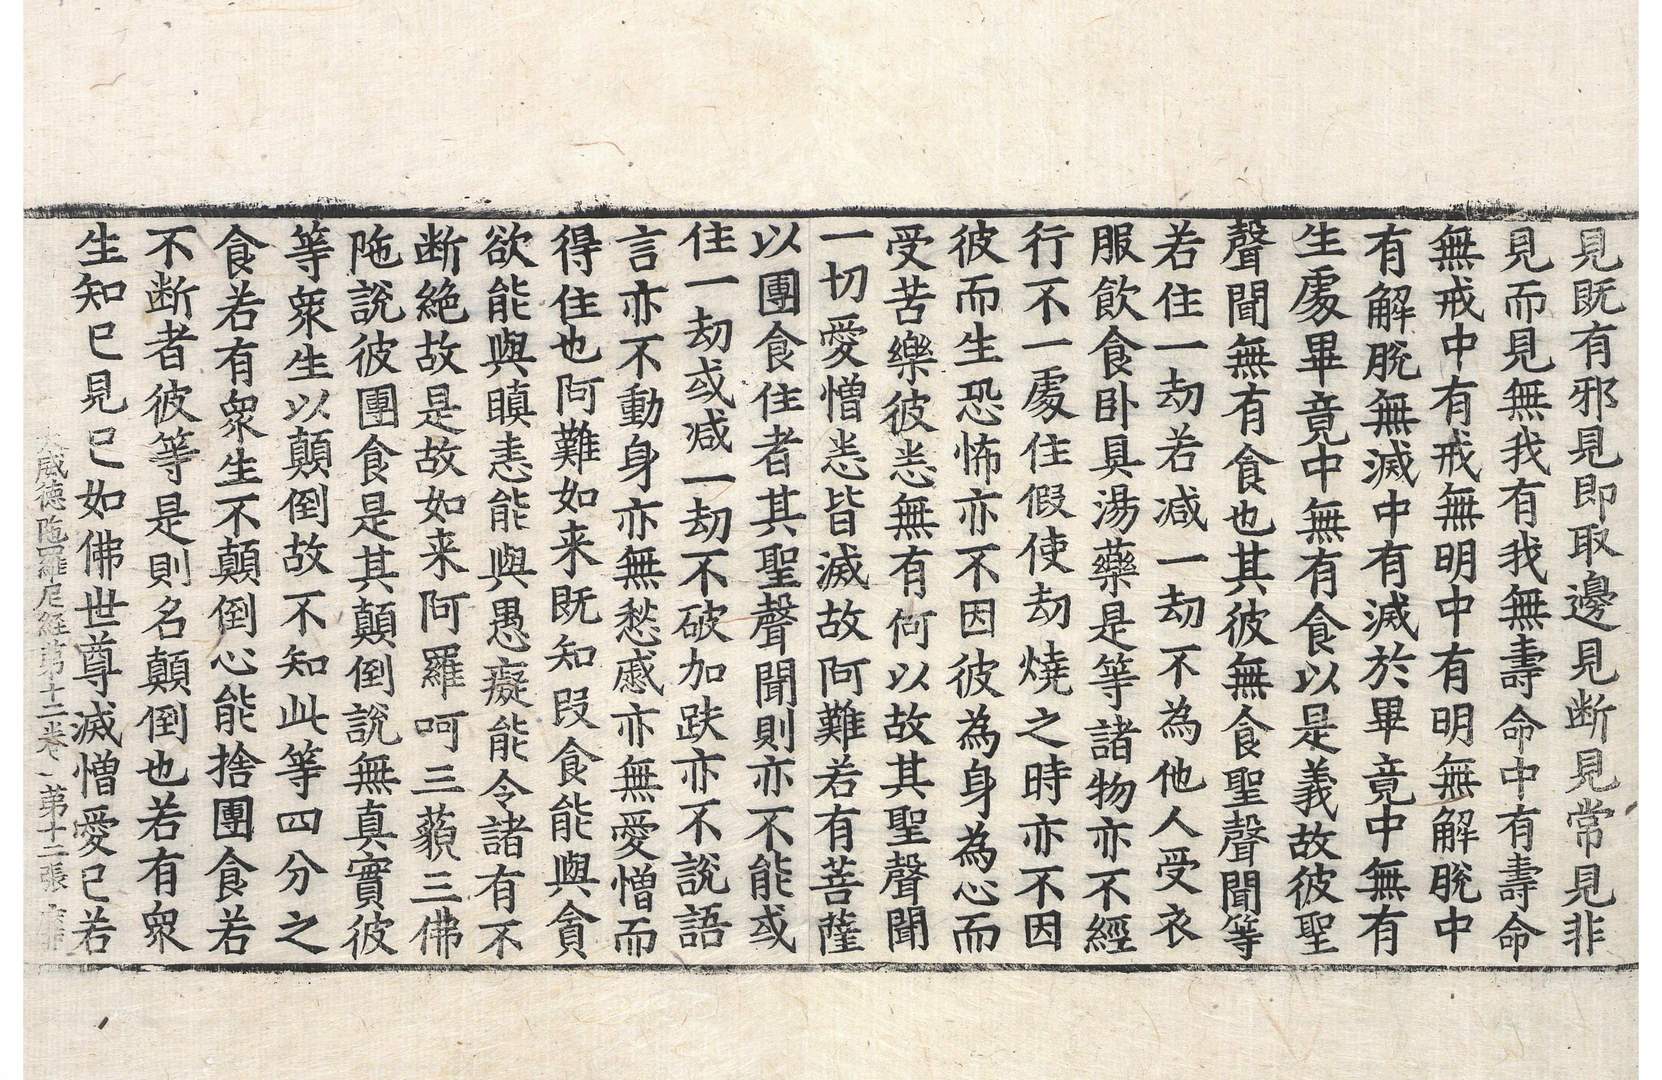 見既有邪見即取邊見断見常見非
見而見無我有我無壽命中有壽命
無戒中有戒無明中有明無解脫中
有解脫無滅中有滅於畢竟中無有
生處畢竟中無有食以是義故彼聖
聲聞無有食也其彼無食聖聲聞等
若住一劫若减一劫不為他人受衣
服飲食卧具湯藥是等諸物亦不經
行不一處住假使劫燒之時亦不因
彼而生恐怖亦不因彼為身為心而
受苦樂彼悉無有何以故其聖聲聞
一切愛憎悉皆滅故阿難若有菩薩
以團食住者其聖聲聞則亦不能或
住一劫或减一劫不破加趺亦不說語
言亦不動身亦無愁慼亦無愛憎而
得住也阿難如来既知叚食能與貪
欲能與瞋恚能與愚癡能令諸有不
断絶故是故如来阿羅呵三藐三佛
陁說彼團食是其顛倒說無真實彼
等衆生以顛倒故不知此等四分之
食若有衆生不顛倒心能捨團食若
不断者彼等是則名顛倒也若有衆
生知已見已如佛世尊滅憎愛已若
大威德陁羅尼經第十二卷 第十二張